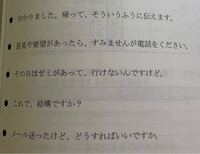 ・分かりました。帰って、そういうふうに伝えます。
・意見や要望があったら、すみませんが電話をください。
・その日はゼミがあって、行けないんですけど。
・これで、結構ですか？
・メール送ったけど、どうすればいいですか。